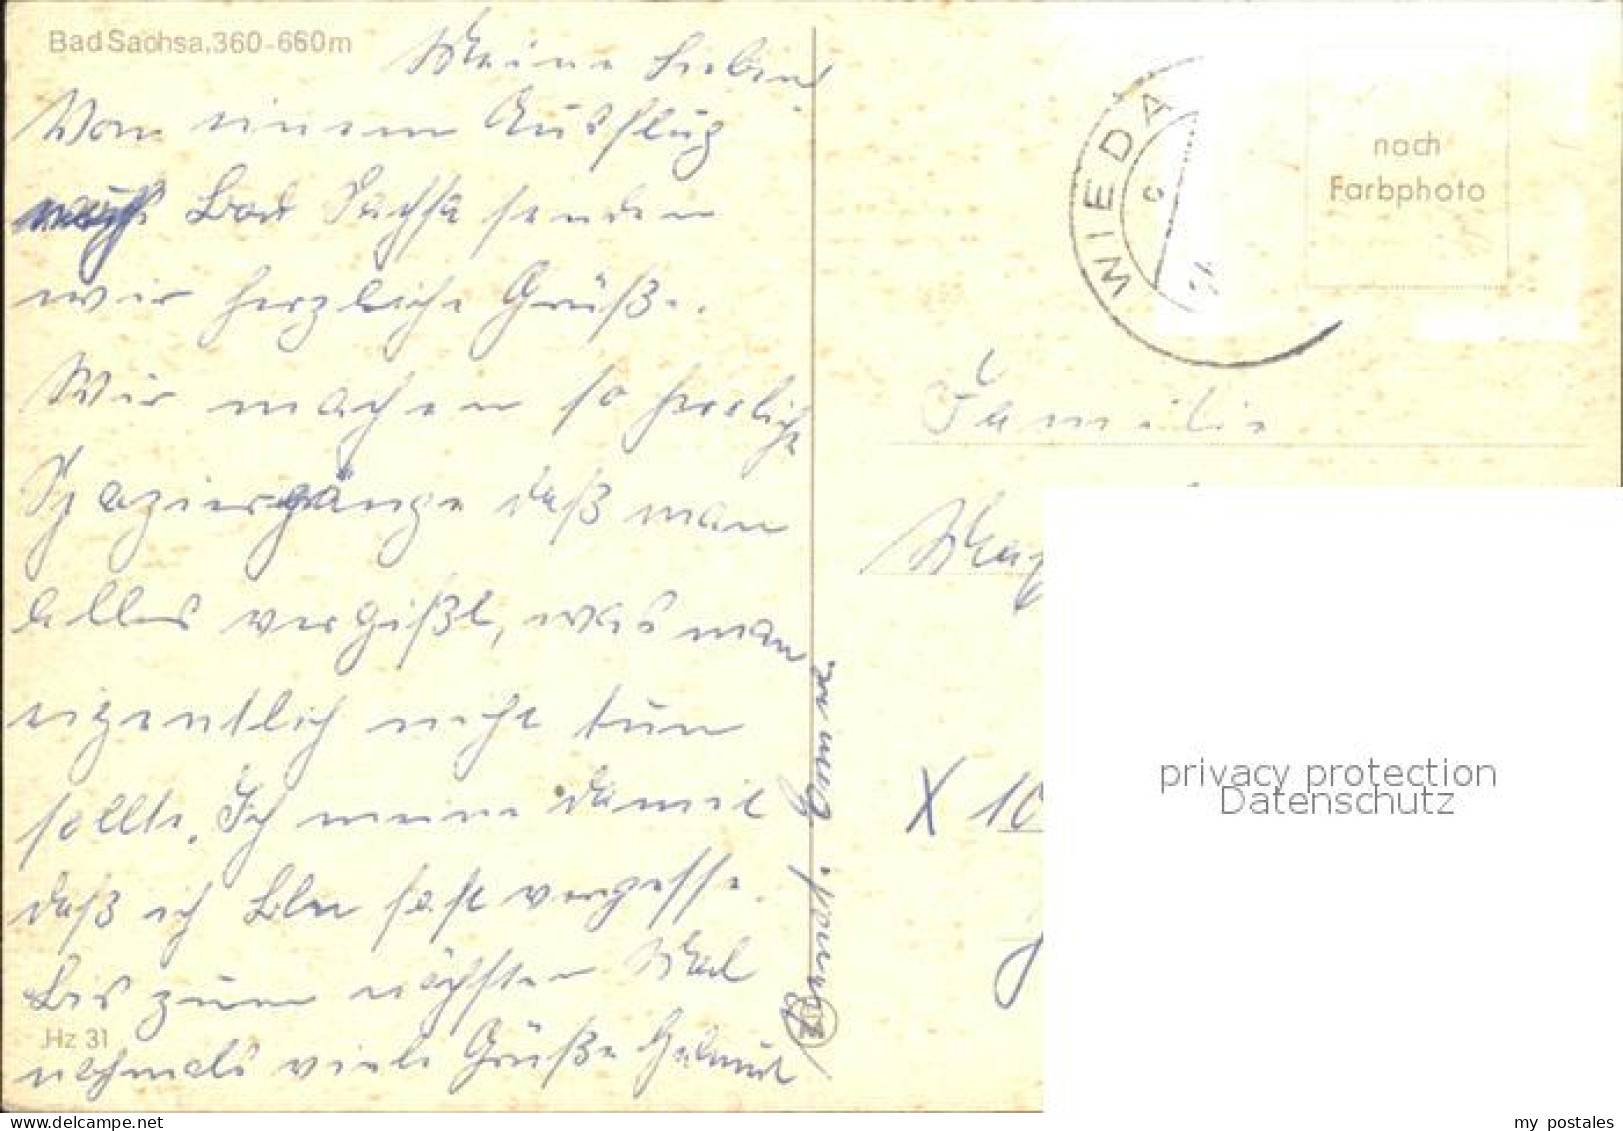 Bad Sachsa, 360-660m
Meine Lieben!
Von einem Ausflug
nach Bad Sachsa senden
wir herzliche Grüße.
Wir machen so herrliche
Spaziergänge daß man
alles vergißt, was man
eigentlich nicht tun
sollte. Ich meine damit
daß ich Bln fast vergesse.
Bis zum nächsten Mal
nochmals viele Grüße Helmut
Hz 31
WIEDA
nach
Farbphoto
Familie
X 10
privacy protection
Datenschutz
my postales